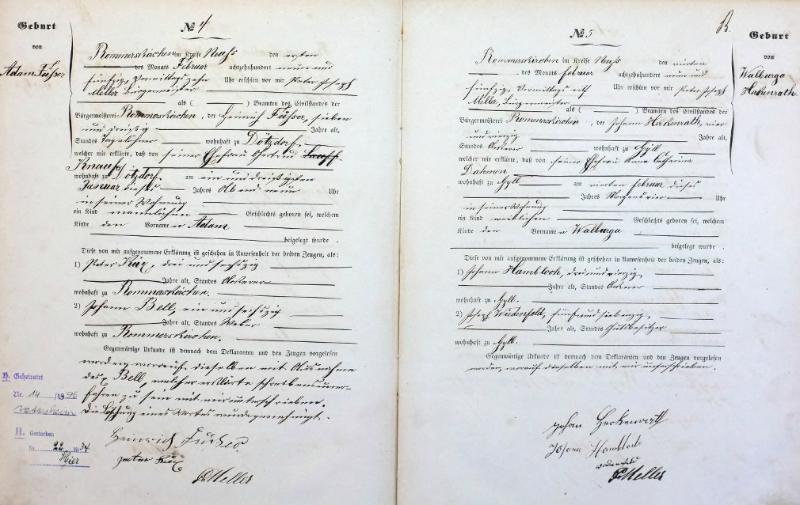 Geburt
von
Adam Füsser
№ 4
Rommerskirchen im Kreise Neuß den ersten
des Monats Februar achtzehnhundert neun und
fünfzig Vormittags zehn Uhr erschien vor mir Peter Joseph
Meller Bürgermeister
als ( ) Beamten des Civilstandes der
Bürgermeisterei Rommerskirchen, der Heinrich Füsser, sieben
und dreißig Jahre alt,
Standes Tagelöhner wohnhaft zu
welcher mir erklärte, daß von seiner Ehefrau Gertrud
Knauf
wohnhaft zu am ein und dreißigsten
Januar dieses Jahres Abends neun Uhr
in seiner Wohnung
ein Kind männlichen Geschlechts geboren sei, welchem
Kinde den Vornamen Adam
beigelegt wurde.
Diese von mir aufgenommene Erklärung ist geschehen in Anwesenheit der beiden Zeugen, als:
1) Peter drei und sechszig
Jahre alt, Standes Ackerer
wohnhaft zu Rommerskirchen.
2) Johann Bell, ein und sechszig
Jahre alt, Standes Weber
wohnhaft zu Rommerskirchen.
Gegenwärtige Urkunde ist demnach dem Deklaranten und den Zeugen vorgelesen
worden, worauf dieselben mit Ausnahme
des Bell, welcher erklärte schreibensuner-
fahren zu sein mit mir unterschrieben.
Die eines Wortes wird genehmigt.
Heinrich Füsser
Meller
H. Geheiratet
Nr. 14
II. Gestorben
Nr. 22 1934
Hier
№ 5
B.
Geburt
von
Walburga
Hakenrath
Rommerskirchen im Kreise Neuß den vierten
des Monats Februar achtzehnhundert neun und
fünfzig, Vormittags elf Uhr erschien vor mir Peter Joseph
Meller, Bürgermeister
als ( ) Beamten des Civilstandes der
Bürgermeisterei Rommerskirchen, der Johann Hakenrath, vier
und vierzig Jahre alt,
Standes Ackerer wohnhaft zu Gill
welcher mir erklärte, daß von seiner Ehefrau Anna Catharina
Dahmen
wohnhaft zu Gill am vierten Februar dieses
Jahres Morgens vier Uhr
in seiner Wohnung
ein Kind weiblichen Geschlechts geboren sei, welchem
Kinde den Vornamen Walburga
beigelegt wurde.
Diese von mir aufgenommene Erklärung ist geschehen in Anwesenheit der beiden Zeugen, als:
1) Johann Hambloch, drei und vierzig
Jahre alt, Standes Ackerer
wohnhaft zu Gill.
2) Joseph fünf und siebenzig
Jahre alt, Standes Gutsbesitzer
wohnhaft zu Gill.
Gegenwärtige Urkunde ist demnach dem Deklaranten und den Zeugen vorgelesen
worden, worauf dieselben mit mir unterschrieben.
Johan
Johann Hambloch
Meller